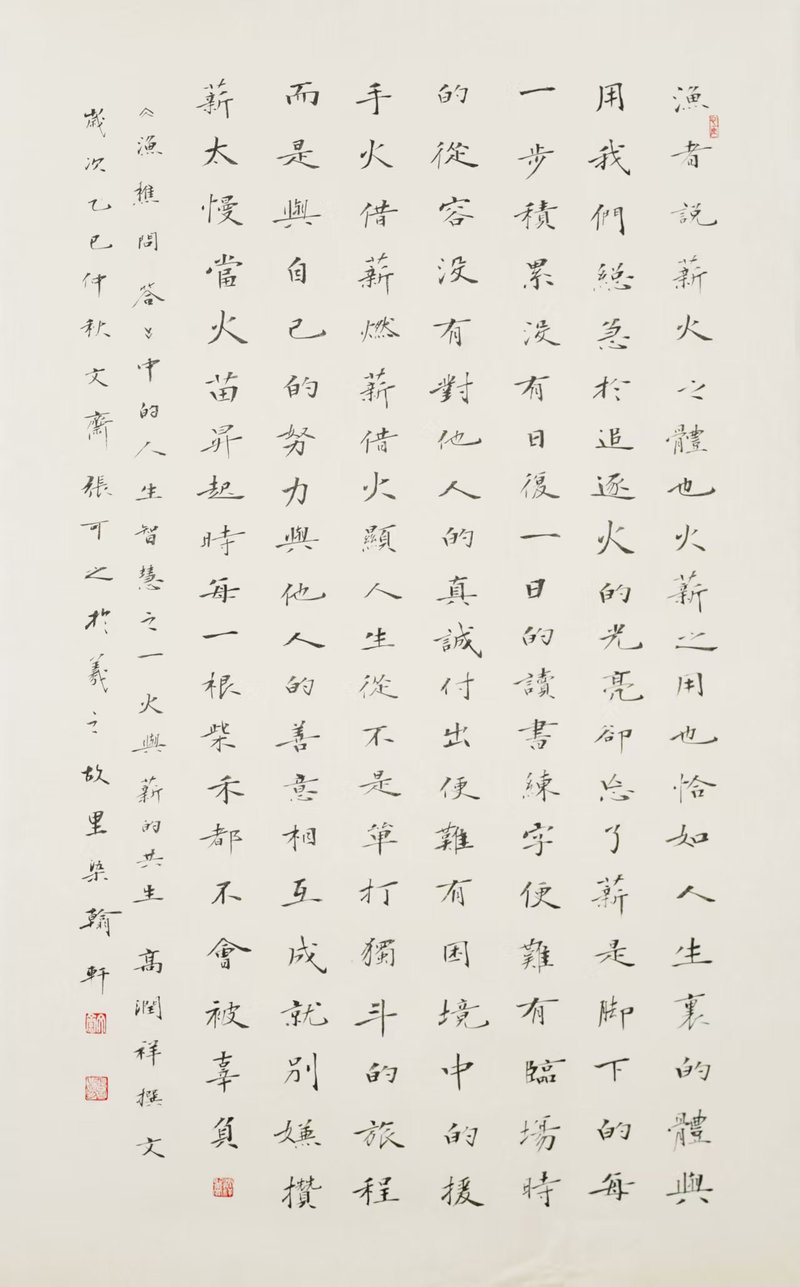 漁者說薪火之體也火薪之用也恰如人生裏的體與
用我們總急於追逐火的光亮卻忘了薪是脚下的每
一步積累没有日復一日的讀書練字便難有臨場時
的從容没有對他人的真誠付出便難有困境中的援
手火借薪燃薪借火顯人生從不是單打獨斗的旅程
而是與自己的努力與他人的善意相互成就别嫌攢
薪太慢當火苗昇起時每一根柴禾都不會被辜負
《漁樵問答》中的人生智慧之一火與薪的共生 高潤祥撰文
歲次乙巳仲秋文齋張可之於羲之故里染翰軒